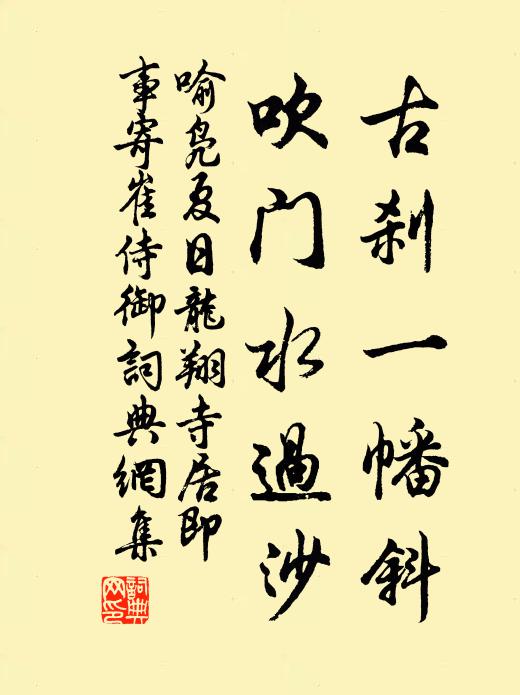 古刹一幡斜
吹门水過沙
喻凫夏日龍翔寺居即
事寄崔侍御詞典網集
詞典网印